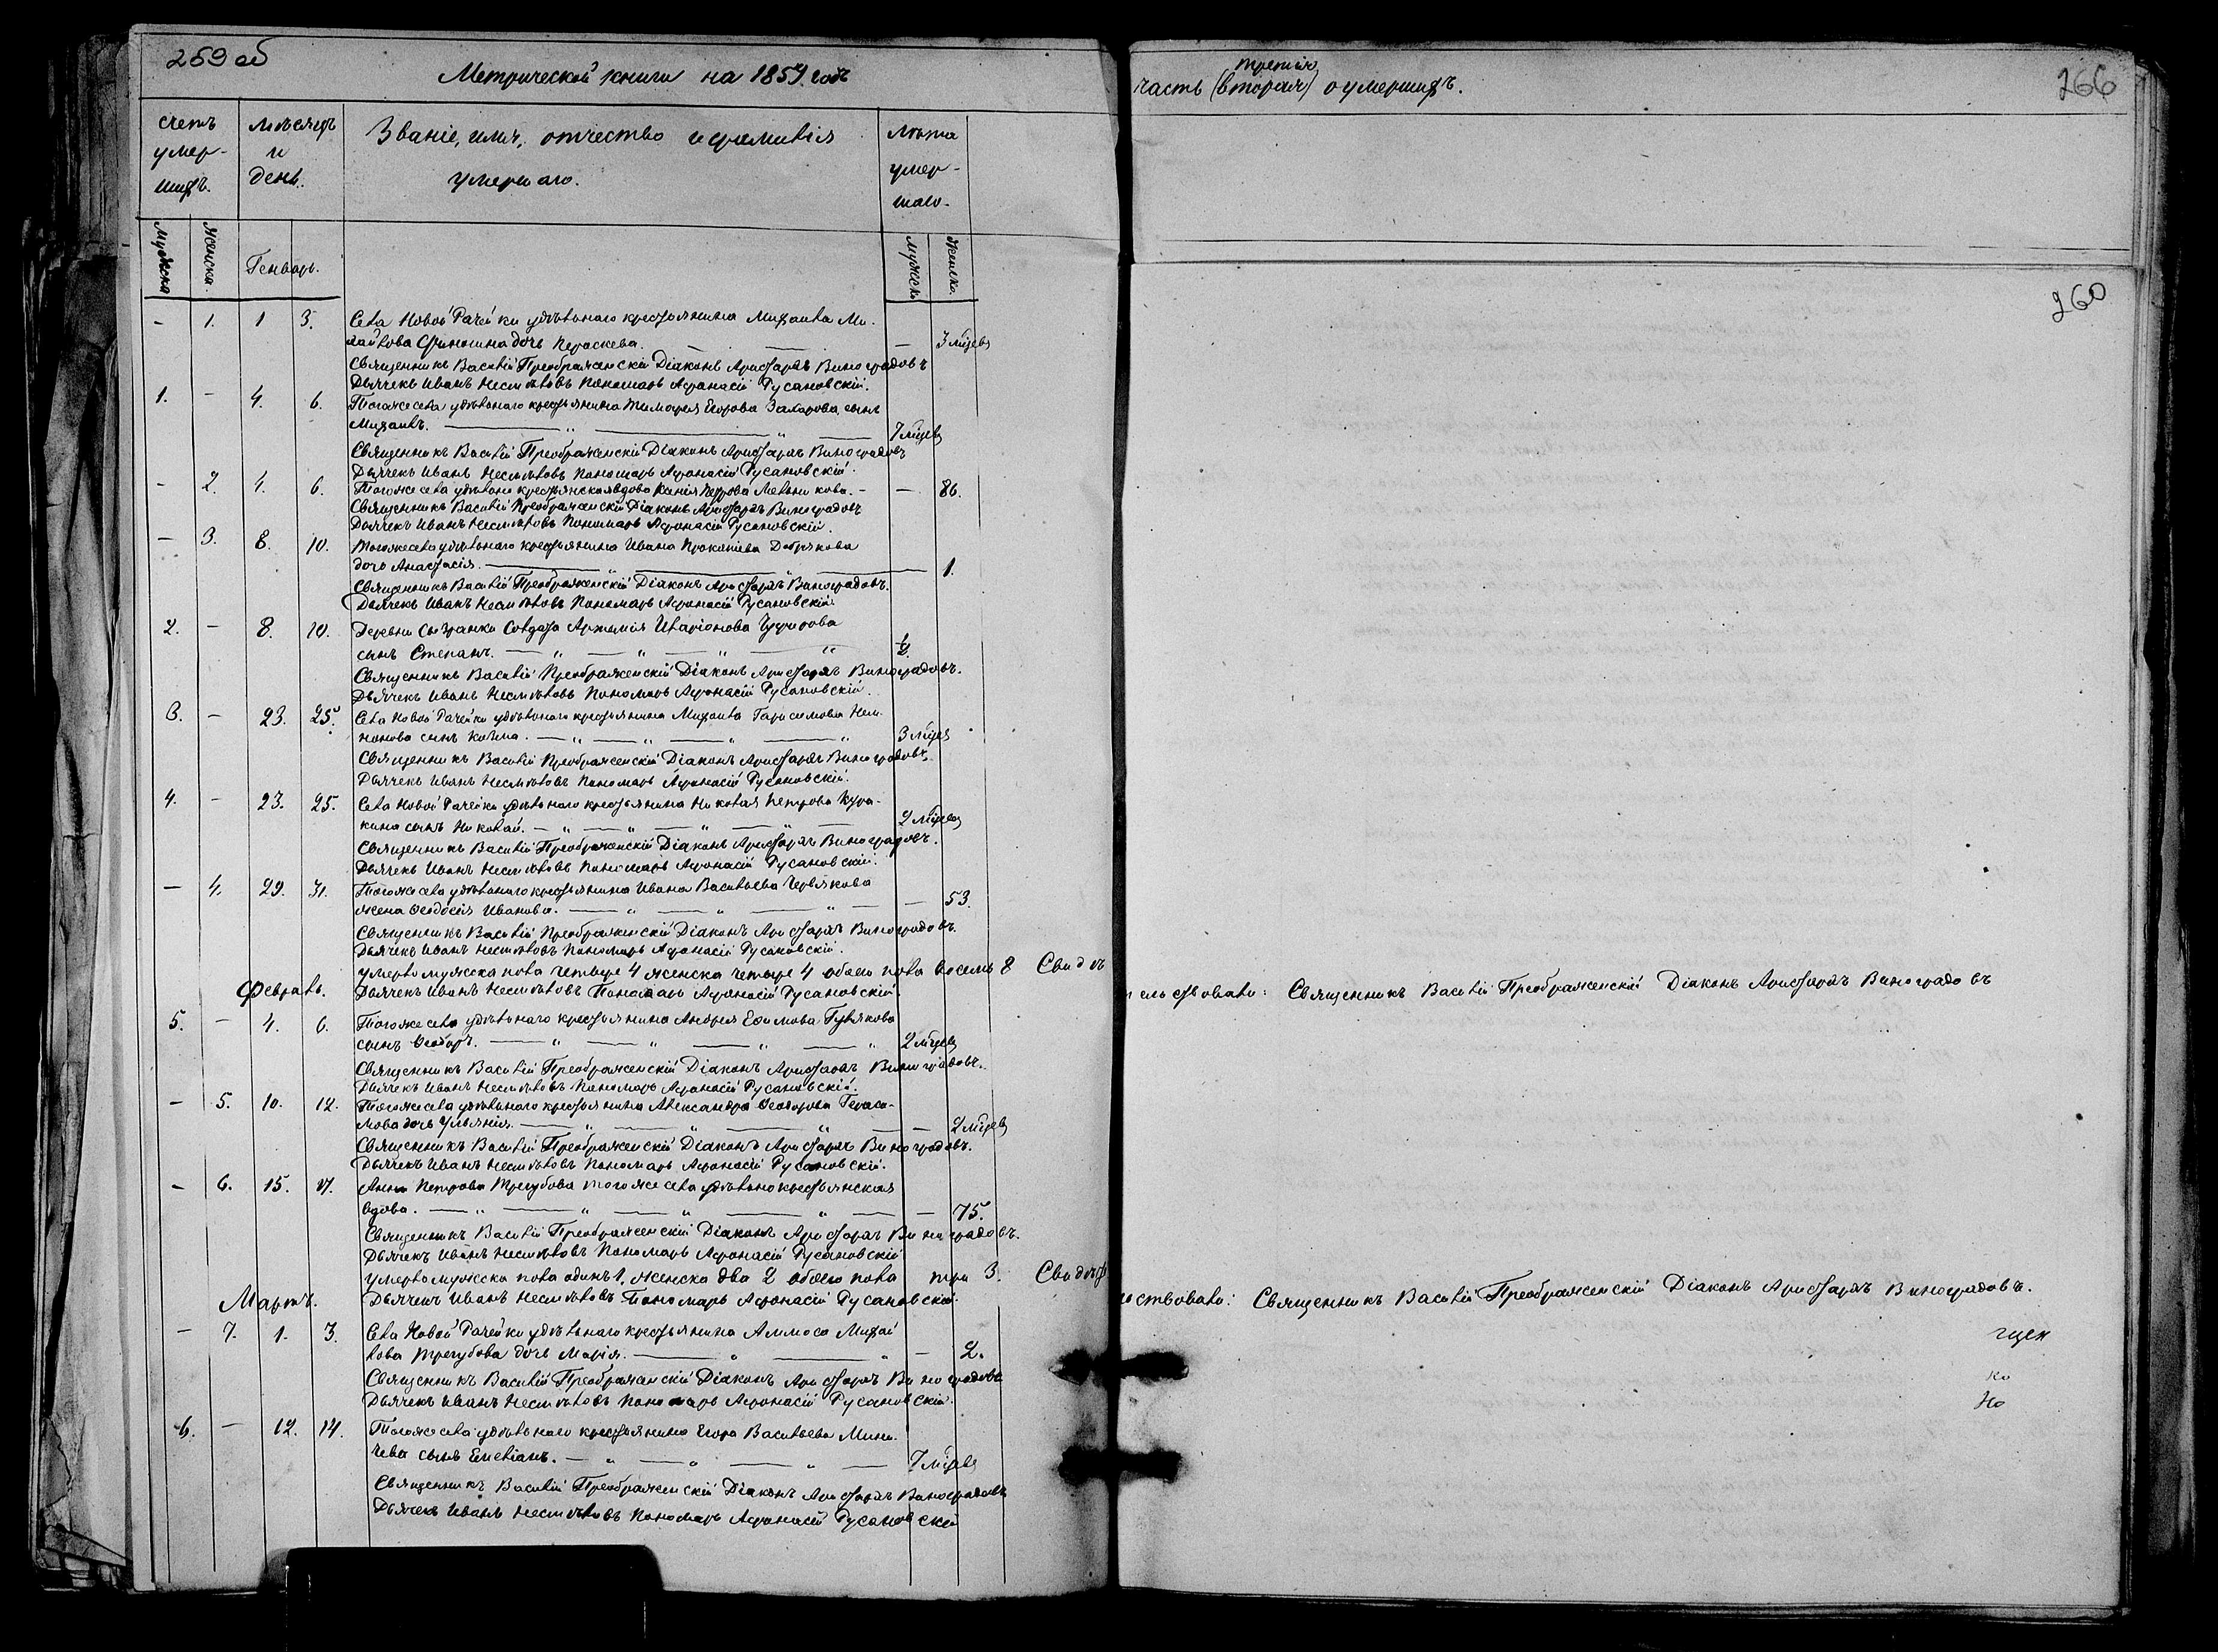 259 об
Метрической книги на 1857 годъ
третія
часть (вторая) о умершихъ.
266
260
счетъ умер-шихъ.
мѣсяцъ и день.
Званіе, имя, отчество и фамилія
умершаго.
лѣта умер-шаго.
Мужска
Женска.
Генварь.
мужск.
женско.
- 1. 1 3. Села Новой Рачейки удѣльнаго крестьянина Михаила Ми-
хайлова дочь Параскева. — 3 мѣсец
Священникъ Василій Преображенскій Діаконъ Аристархъ Виноградовъ
Дьячекъ Иванъ Несмѣловъ Пономарь Афанасій Русановскій.
1. - 4. 6. Тогоже села удѣльнаго крестьянина Тимофея Егорова Захарова сынъ
Михаилъ. 7 мѣцев
Священникъ Василій Преображенскій Діаконъ Аристархъ Виноградовъ
Дьячекъ Иванъ Несмѣловъ Пономарь Афонасій Русановскій.
- 2. 4. 6. Тогоже села удѣльно крестьянская вдова Петрова Мельникова. - — 86.
Священникъ Василій Преображенскій Діаконъ Аристархъ Виноградовъ
Дьячекъ Иванъ Несмѣловъ Пономарь Афонасій Русановскій.
- 3. 8. 10. Тогоже села удѣльнаго крестьянина Ивана Прокопіева Добрякова
дочь Анастасія. 1.
Священникъ Василій Преображенскій Діаконъ Аристархъ Виноградовъ.
Дьячекъ Иванъ Несмѣловъ Пономарь Афонасій Русановскій.
2. - 8. 10. Деревни Сызранки Солдата Артемія Иларіонова
сынъ Степанъ. ½
Священникъ Василій Преображенскій Діаконъ Аристархъ Виноградовъ.
Дьячекъ Иванъ Несмѣловъ Пономарь Афонасій Русановскій.
3. - 23. 25. Села Новой Рачейки удѣльнаго крестьянина Михаила Гарасимова
сынъ Козма. 3 мѣцев
Священникъ Василій Преображенскій Діаконъ Аристархъ Виноградовъ.
Дьячекъ Иванъ Несмѣловъ Пономарь Афонасій Русановскій.
4. - 23. 25. Села Новой Рачейки удѣльнаго крестьянина Николая Петрова Кура-
кина сынъ Николай. 2 мѣцев
Священникъ Василій Преображенскій Діаконъ Аристархъ Виноградовъ.
Дьячекъ Иванъ Несмѣловъ Пономарь Афонасій Русановскій.
- 4. 29. 31. Тогоже села удѣльнаго крестьянина Ивана Васильева Червякова
жена Феодосія Иванова. — 53.
Священникъ Василій Преображенскій Діаконъ Аристархъ Виноградовъ.
Дьячекъ Иванъ Несмѣловъ Пономарь Афонасій Русановскій.
умерло мужска пола четыре 4 женска четыре 4 обоего пола восемь 8 Свидѣ
тельствовали: Священникъ Василій Преображенскій Діаконъ Аристархъ Виноградовъ
Февраль. Дьячекъ Иванъ Несмѣловъ Пономарь Афонасій Русановскій.
5. - 4. 6. Тогоже села удѣльнаго крестьянина Андрея Ефимова Гулякова
сынъ Феодоръ. 2 мѣцев
Священникъ Василій Преображенскій Діаконъ Аристархъ Виноградовъ.
Дьячекъ Иванъ Несмѣловъ Пономарь Афонасій Русановскій.
- 5. 10. 12. Тогоже села удѣльнаго крестьянина Александра Феодорова Гераси-
мова дочь Ульянія. — 2 мѣцев
Священникъ Василій Преображенскій Діаконъ Аристархъ Виноградовъ.
Дьячекъ Иванъ Несмѣловъ Пономарь Афонасій Русановскій.
- 6. 15. 17. Анна Петрова Трегубова тогоже села удѣльно крестьянская
вдова. — 75.
Священникъ Василій Преображенскій Діаконъ Аристархъ Виноградовъ.
Дьячекъ Иванъ Несмѣловъ Пономарь Афонасій Русановскій
умерло мужска пола одинъ 1. женска два 2 обоего пола три 3. Свидѣт
ельствовали: Священникъ Василій Преображенскій Діаконъ Аристархъ Виноградовъ.
Мартъ. Дьячекъ Иванъ Несмѣловъ Пономарь Афонасій Русановскій.
- 7. 1. 3. Села Новой Рачейки удѣльнаго крестьянина Аммоса Михай
лова Трегубова дочь Марія. — 2.
Священникъ Василій Преображенскій Діаконъ Аристархъ Виноградовъ
Дьячекъ Иванъ Несмѣловъ Пономарь Афонасій Русановскій.
6. - 12. 14. Тогоже села удѣльнаго крестьянина Егора Васильева Мини-
чева сынъ Емеліанъ. 7 мѣцев
Священникъ Василій Преображенскій Діаконъ Аристархъ Виноградовъ
Дьячекъ Иванъ Несмѣловъ Пономарь Афонасій Русановскій